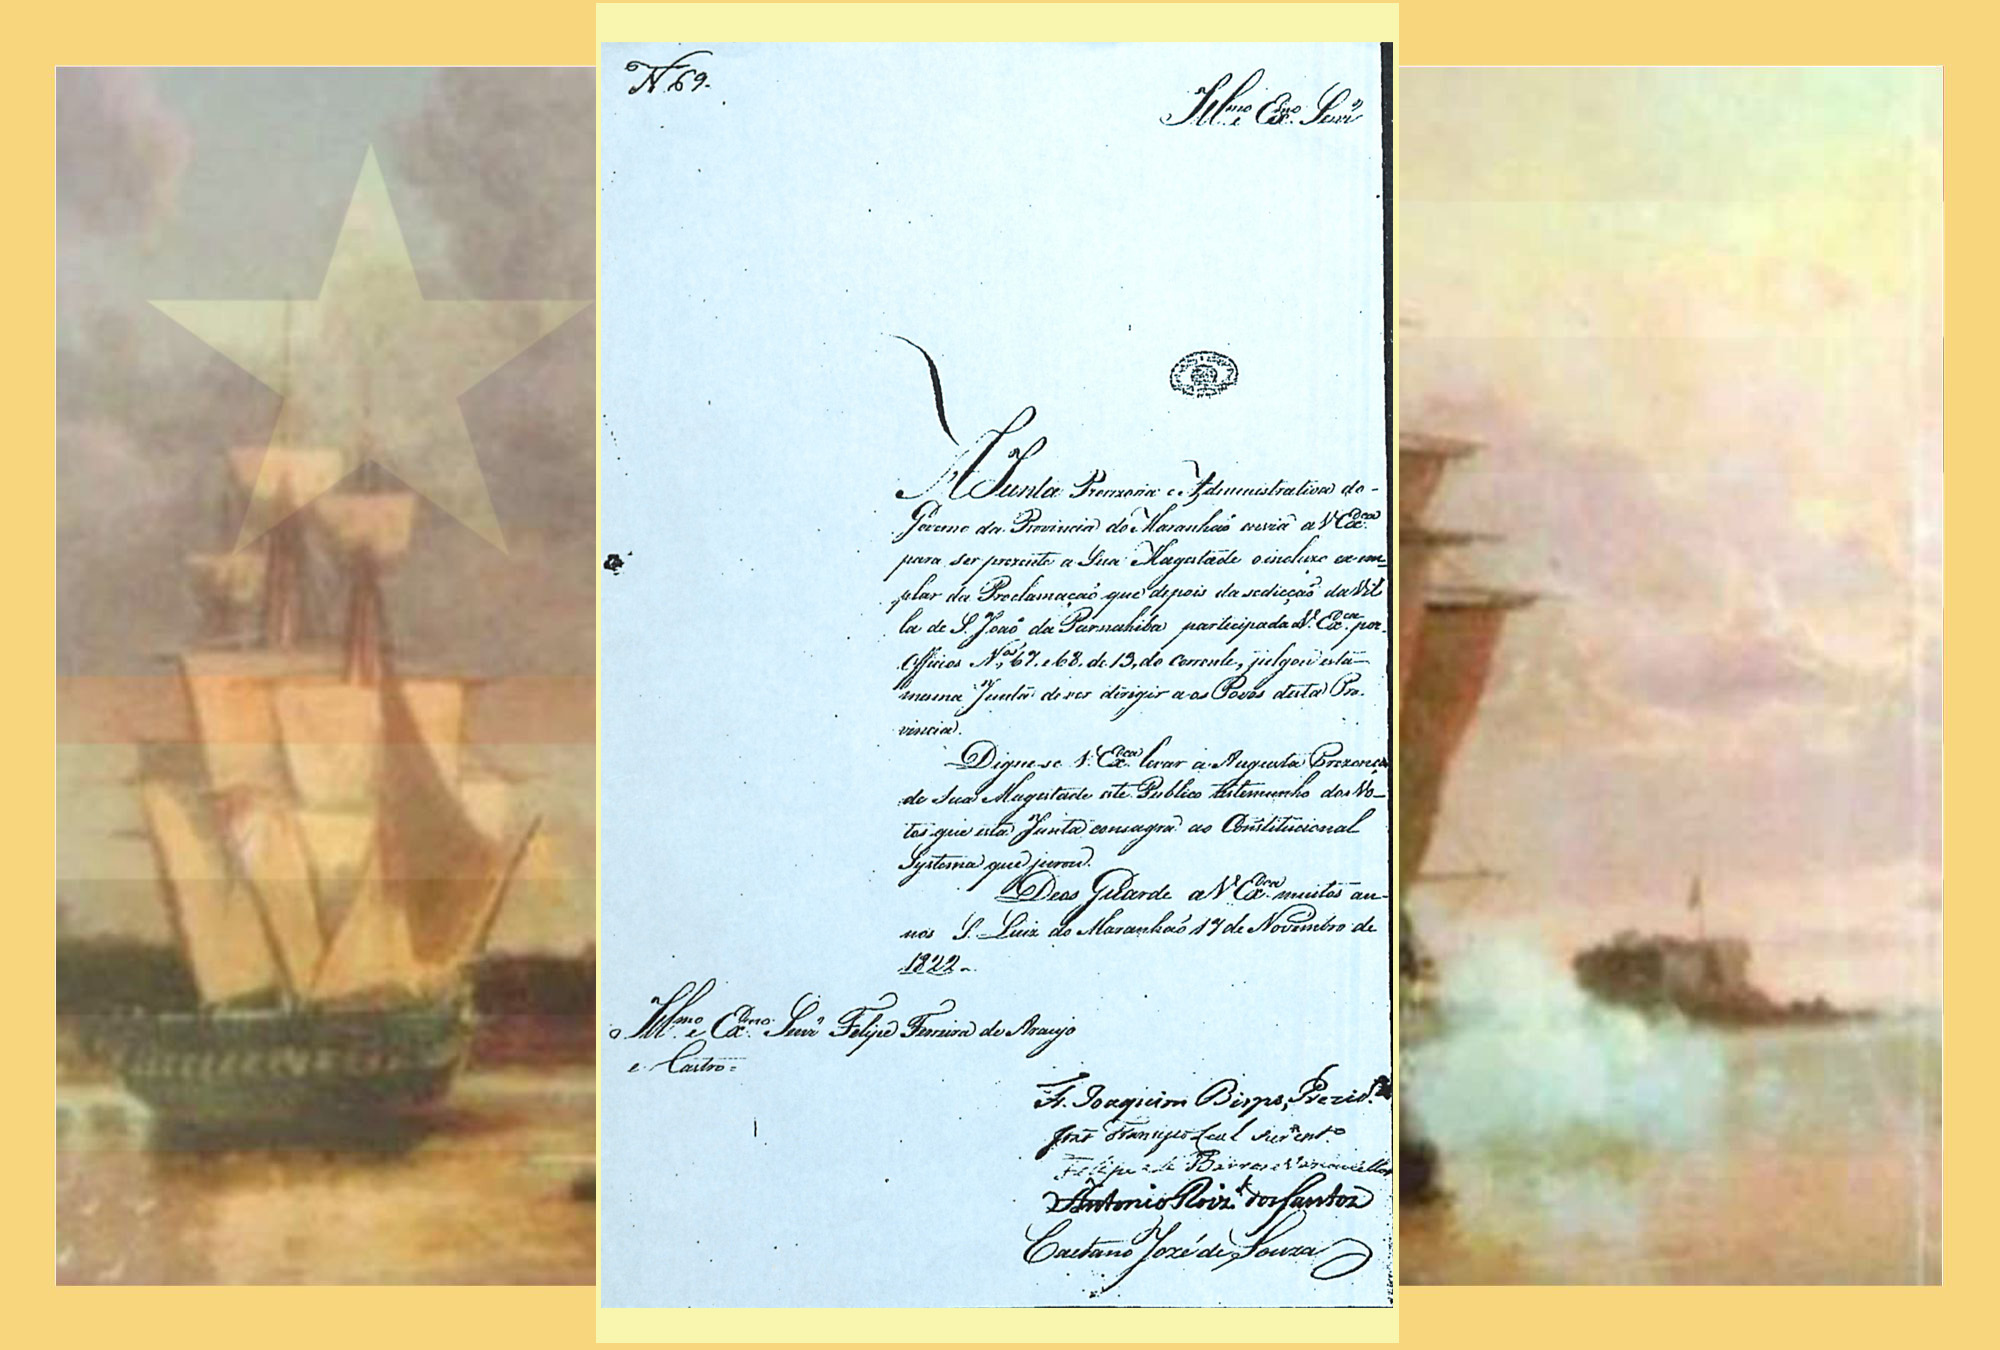 N. 69.
Ill.mo e Ex.mo Senr.
A Junta Provizoria e Administrativa do
Governo da Provincia do Maranhaõ envia a V. Ex.cia
para ser prezente a Sua Magestade o incluzo exem-
plar da Proclamaçaõ que depois da sedicçaõ da Vil
la de S. Joaõ da Parnahiba participada a V. Ex.cia por
Officios N.os 67. e 68. de 13, do corrente, julgou esta
mesma Junta dever dirigir aos Povos desta Pro-
vincia.
Digne-se V. Ex.cia levar á Augusta Prezença
de Sua Magestade este Publico testemunho dos Vo-
tos que esta Junta consagra ao Constitucional
Systema que jurou.
Deos Guarde a V. Ex.cia muitos an-
nos S. Luiz do Maranhaõ 17 de Novembro de
1822.
Ill.mo e Ex.mo Senr. Felipe Ferreira de Araujo
e Castro=
Fr. Joaquim Bispo, Prezid.e
Leal
Felipe de Barros e Vasconcellos
Antonio Roiz' dos Santos
Caetano Jozé de Souza